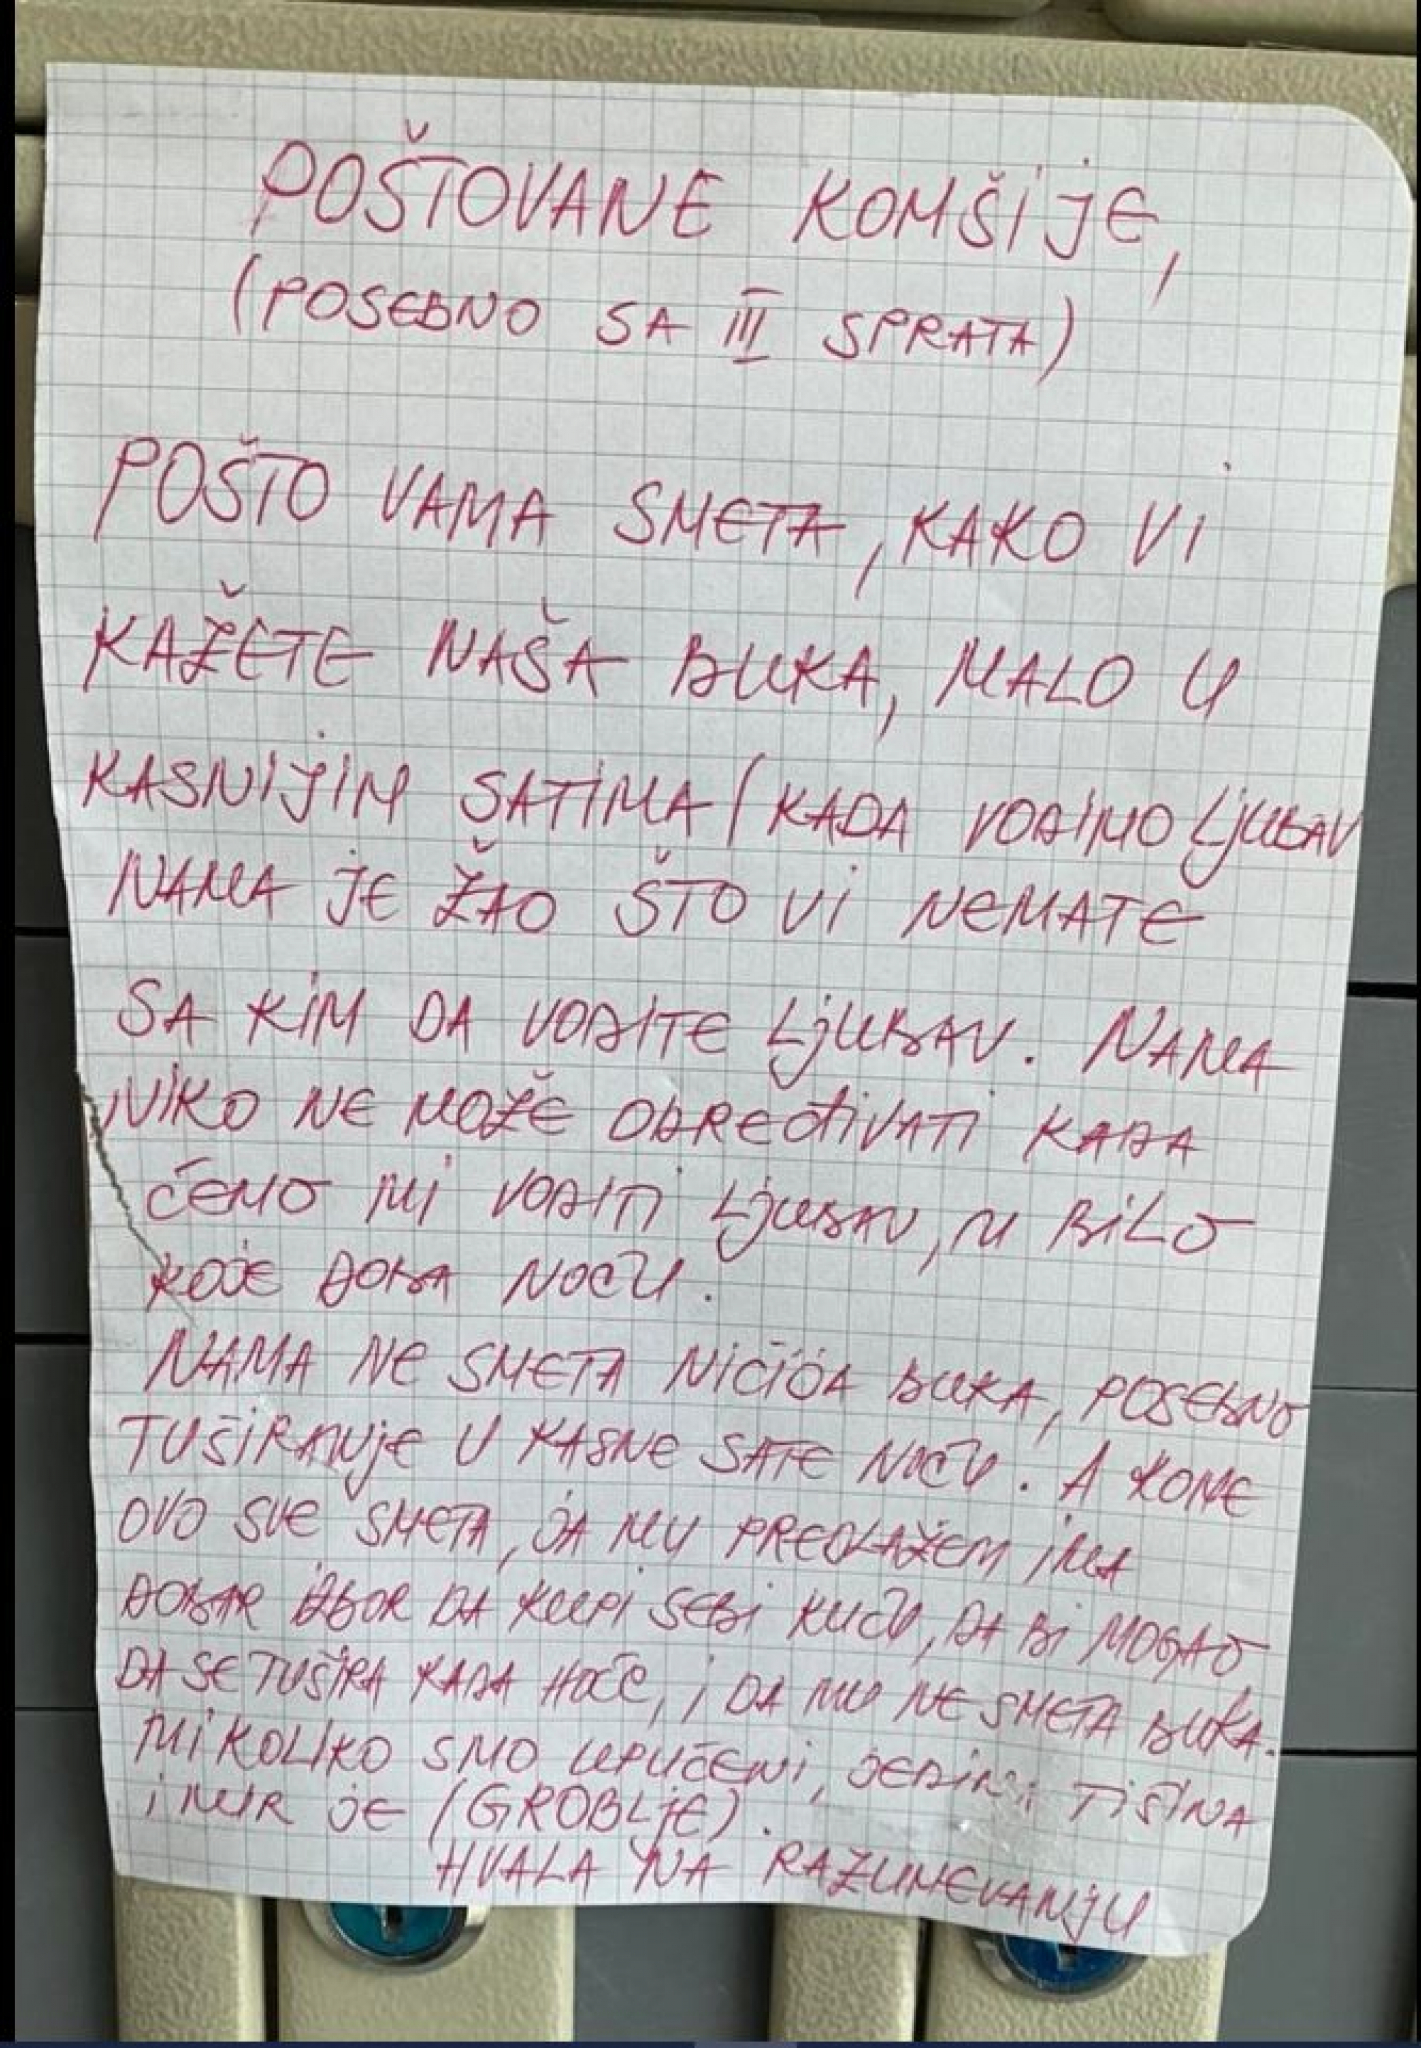 POŠTOVANE KOMŠIJE,
(POSEBNO SA III SPRATA)
POŠTO VAMA SMETA, KAKO VI
KAŽETE NAŠA BUKA, MALO U
KASNIJIM SATIMA (KADA VODIMO LJUBAV
NAMA JE ŽAO ŠTO VI NEMATE
SA KIM DA VODITE LJUBAV. NAMA
NIKO NE MOŽE ODREĐIVATI KADA
ĆEMO MI VODITI LJUBAV, U BILO
KOJE DOBA NOĆU.
NAMA NE SMETA NIČIJA BUKA, POSEBNO
TUŠIRANJE U KASNE SATE NOĆU. A KOME
OVO SVE SMETA, JA MU PREDLAŽEM IMA
DOBAR IZBOR DA KUPI SEBI KUĆU, DA BI MOGAO
DA SE TUŠIRA KADA HOĆE, I DA MU NE SMETA BUKA.
MI KOLIKO SMO UPUĆENI, JEDINI TIŠINA
I MIR JE (GROBLJE).
HVALA NA RAZUMEVANJU